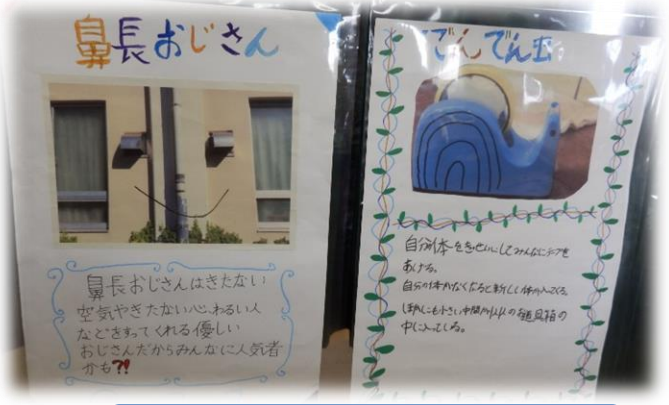 鼻長おじさん
鼻長おじさんはきたない
空気やきたない心、わるい人
などをすってくれる優しい
おじさんだからみんなに人気者
かも?!
でんでん虫
自分の体をぎせいにしてみんなにテープを
あげる。
自分の体がなくなると新しい体が入ってくる。
ほかにも小さい仲間が1人1人のお道具箱の
中に入っている。